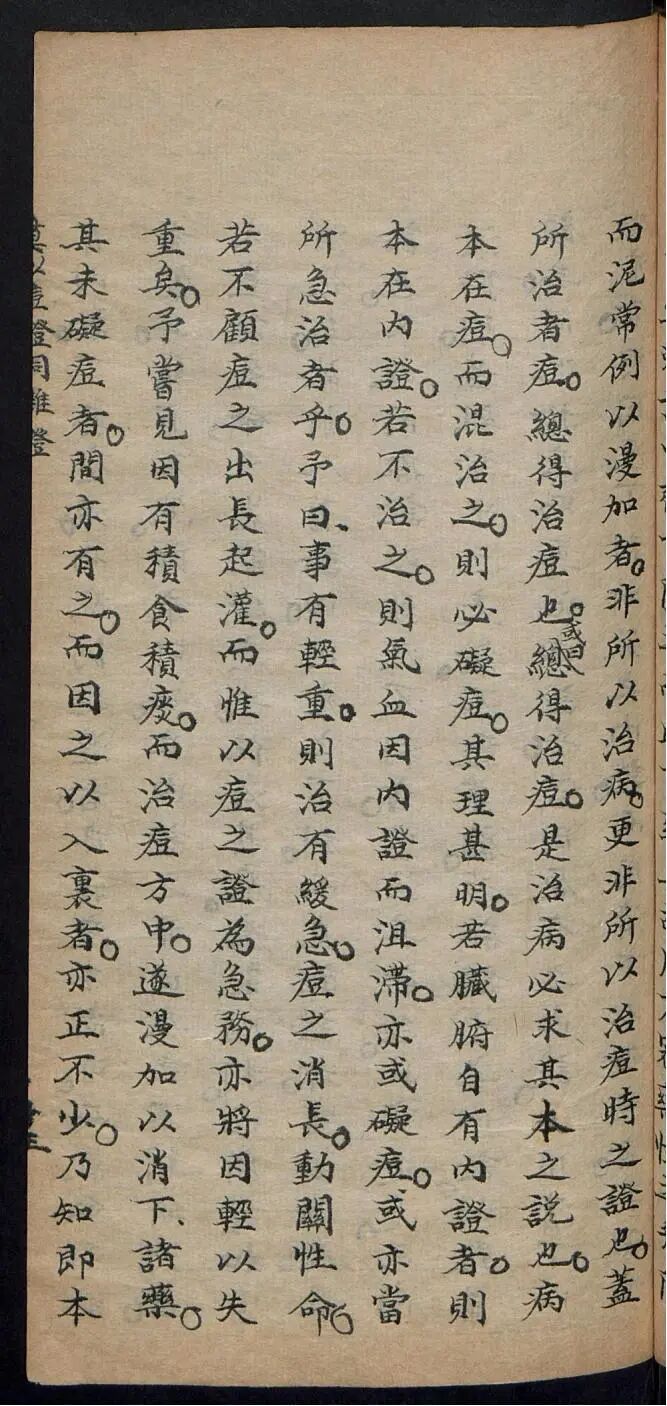 而泥常例以漫加者。非所以治病。更非所以治痘時之證也。蓋
所治者痘。總得治痘也。或曰總得治痘。是治病必求其本之説也。病
本在痘。而混治之。則必礙痘。其理甚明。若臟腑自有内證者。則
本在内證。若不治之。則氣血因内證而沮滯。亦或礙痘。或亦當
所急治者乎。予曰、事有輕重。則治有緩急。痘之消長。動關性命。
若不顧痘之出長起灌。而惟以痘之證為急務。亦將因輕以失
重矣。予嘗見因有積食積痰。而治痘方中。遂漫加以消下、諸藥。
其未礙痘者。間亦有之。而因之以入裏者。亦正不少。乃知即本